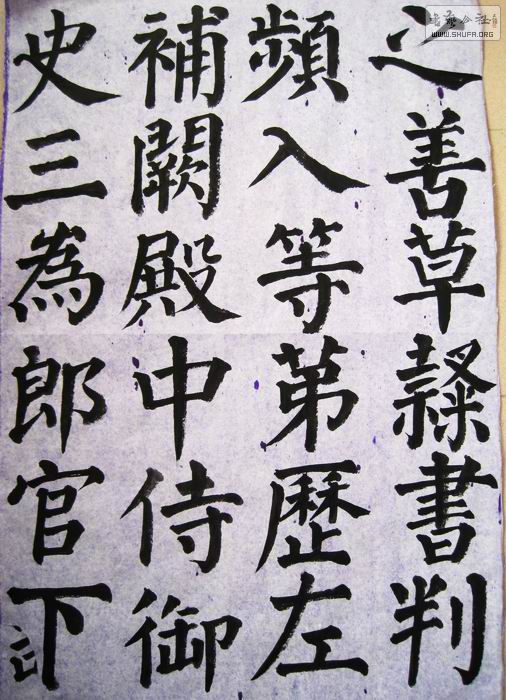 之善草隸書判
頻入等第歷左
補闕殿中侍御
史三為郎官下
WWW.SHUFA.ORG